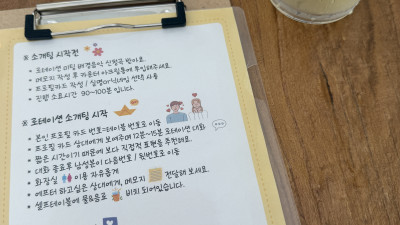 ※ 소개팅 시작전
• 로테이션 미팅 배경음악 신청곡 받아요.
• 메모지 작성 후 카운터 아크릴통에 투입해주세요.
• 프로필카드 작성 / 실명or닉네임 선택 사용
• 진행 소요시간 90~100분 입니다.
※ 로테이션 소개팅 시작
• 본인 프로필 카드 번호=테이블 번호로 이동
• 프로필 카드 상대에게 보여주며 12분~15분 로테이션 대화
• 짧은 시간이기 때문에 보다 직접적 표현을 추천해요.
• 대화 종료후 남성분이 다음번호 / 원번호로 이동
• 화장실 이용 자유롭게
• 에프터 하고싶은 상대에게, 메모지 전달해 보세요.
• 셀프테이블에 물&음료 비치 되어있습니다.